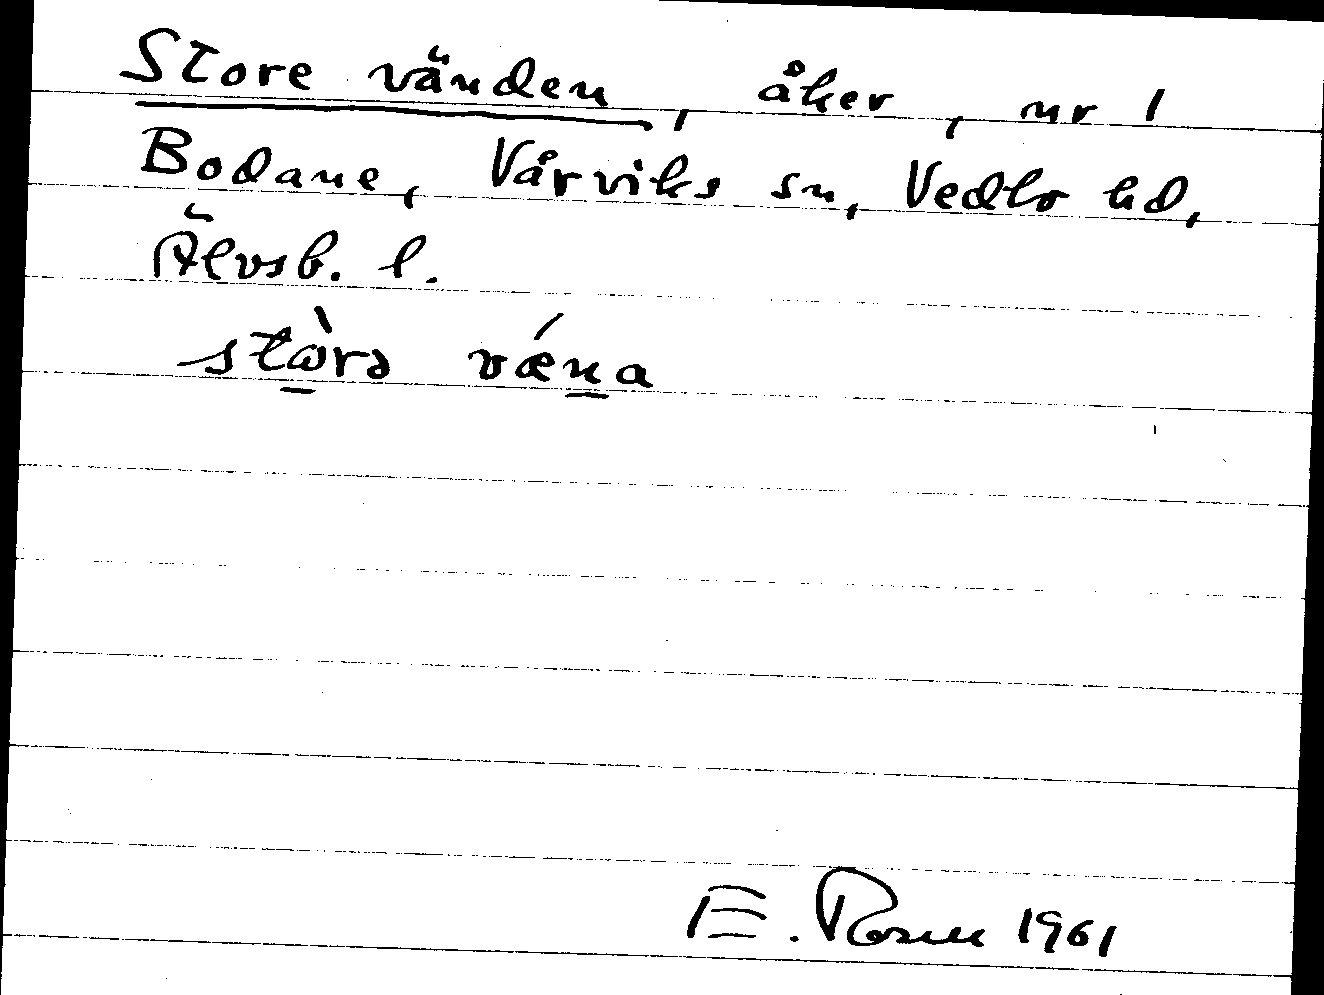 Store vänden, åker, nr 1
Bodane, Vårviks sn, Vedbo hd,
Älvsb. l.
stὼ̲rə vǽn̲a
E. Rosell 1961